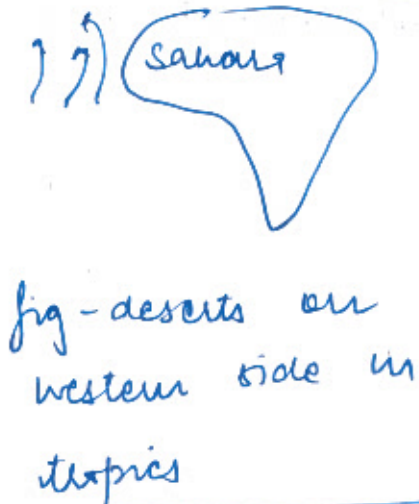 Sahara
fig-deserts on
western side in
tropics